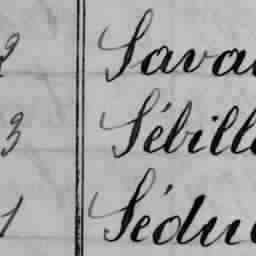 2 Sava
3 Sébill
1 Sédu